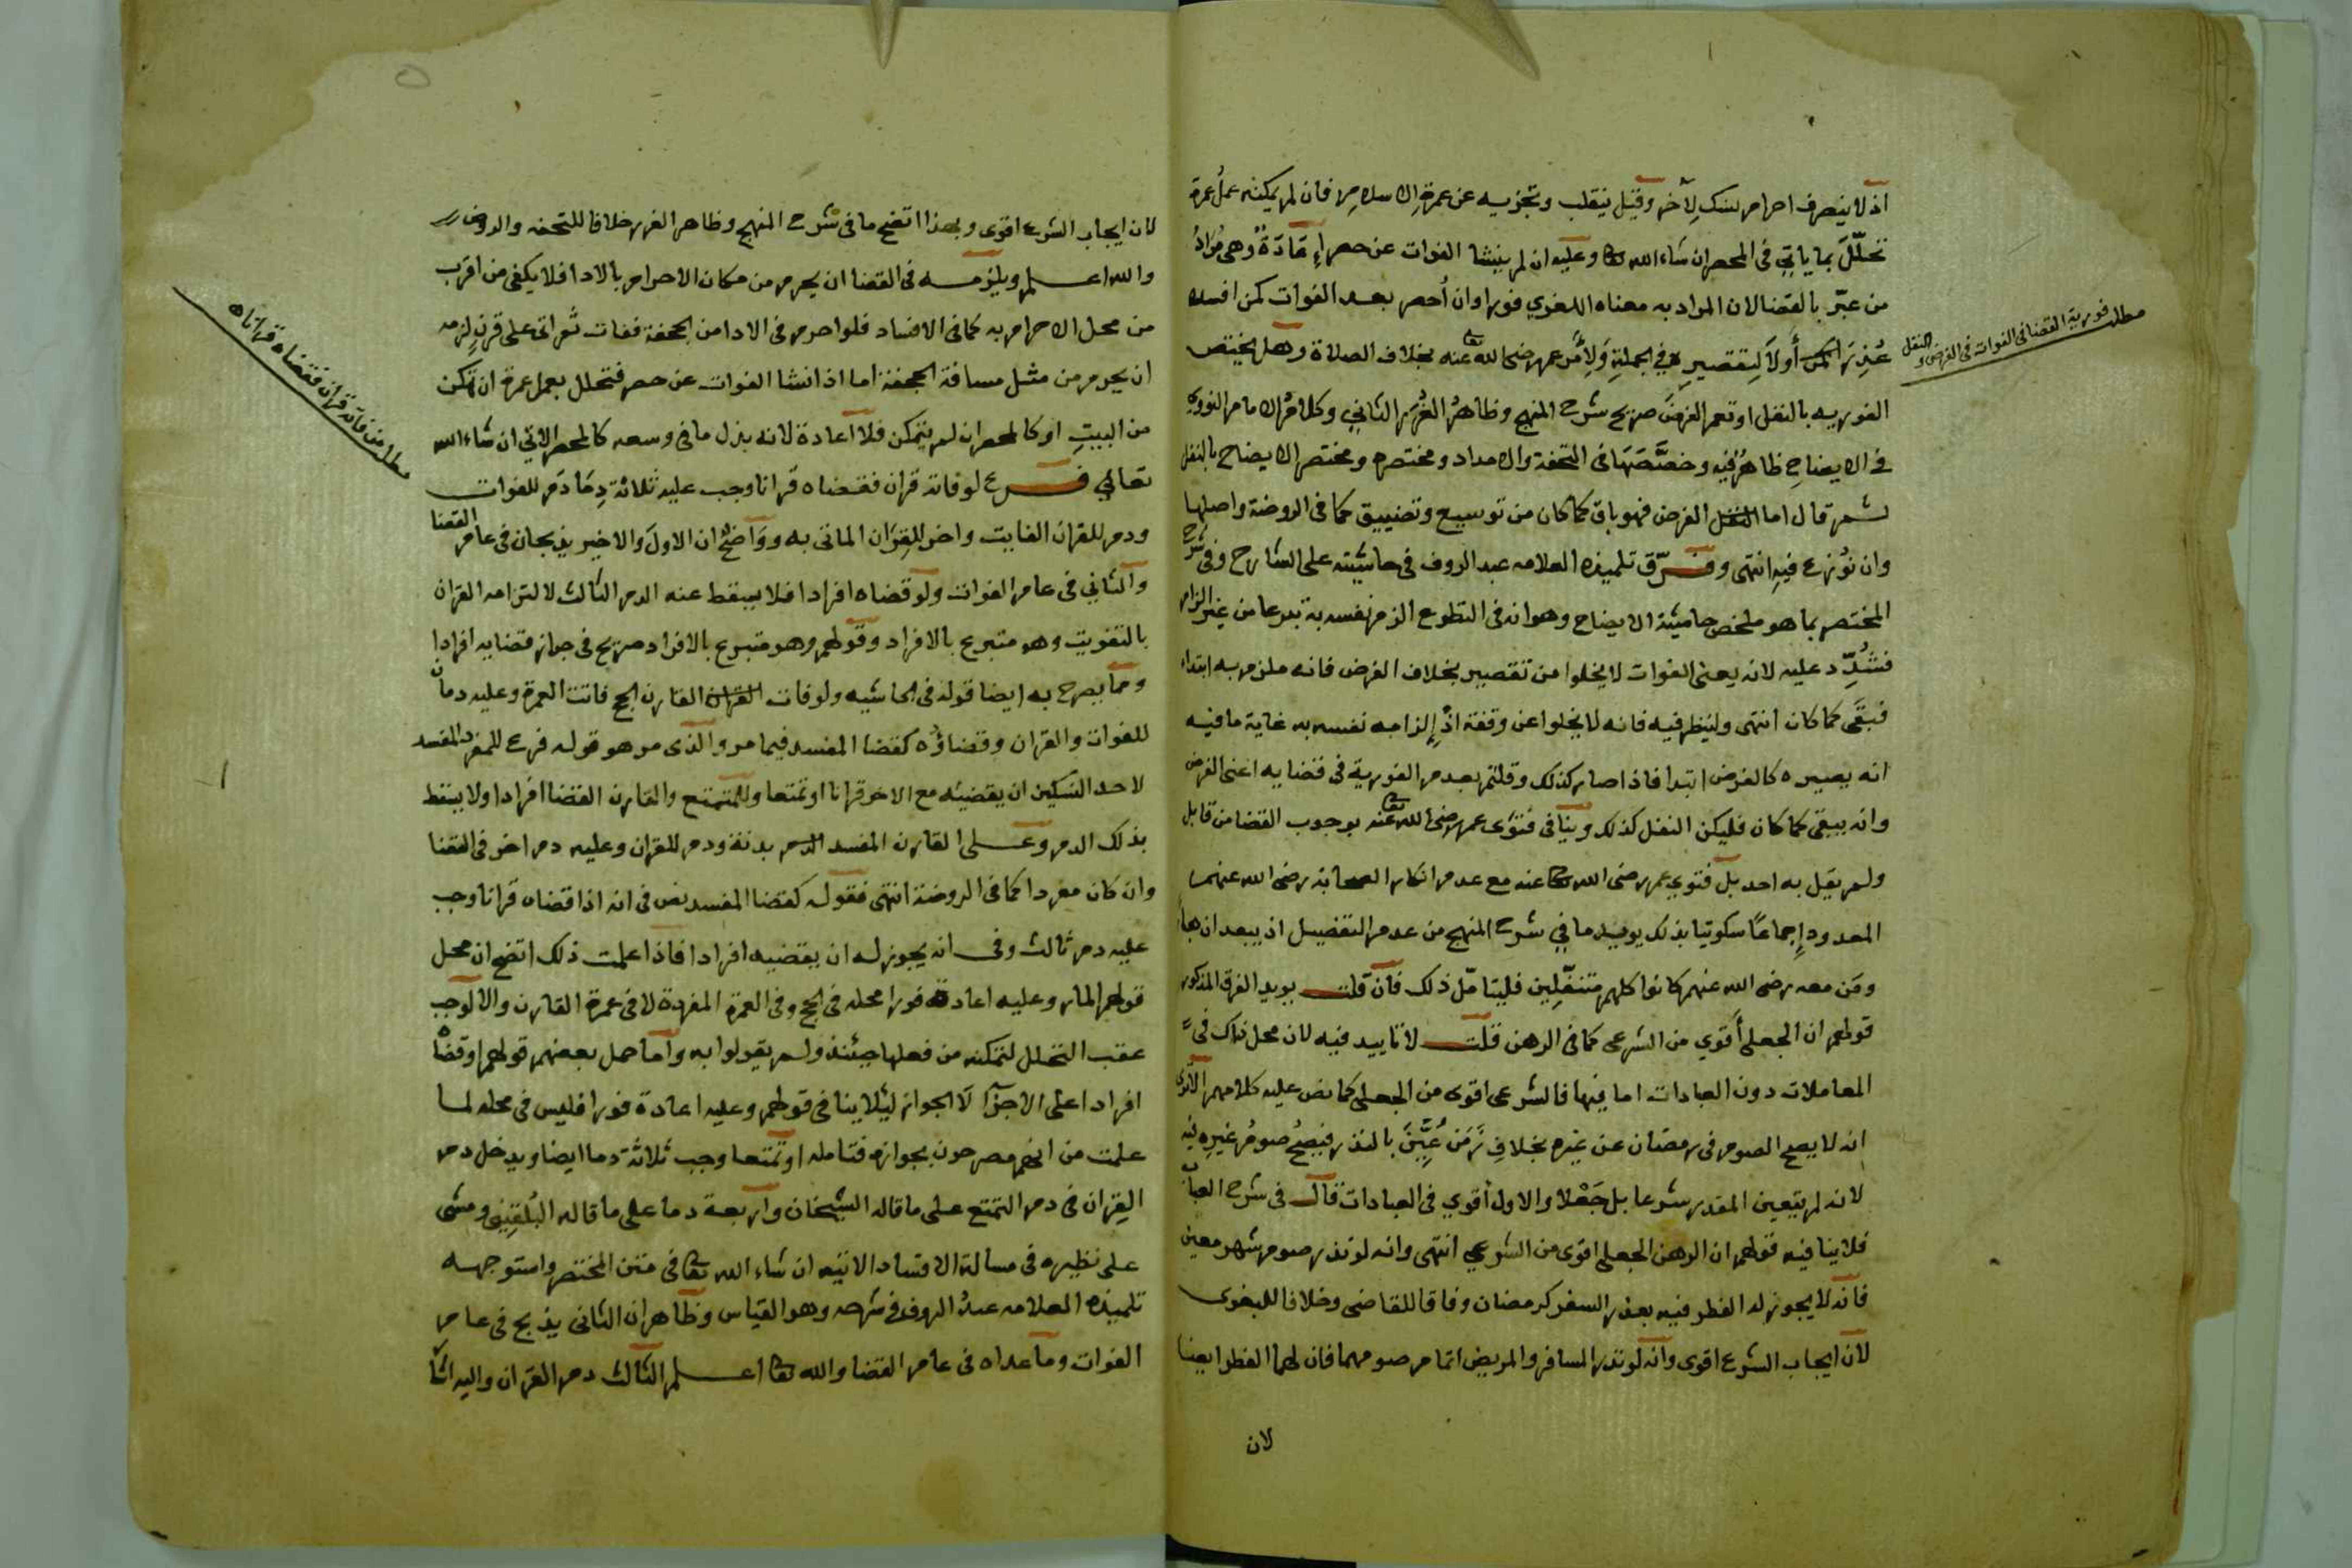 اذ لا ينصرف احرام بنسك لآخر وقيل ينقلب وتجزيه عن عمرة الاسلام فان لم يمكنه عمل عمرة
تحلّل بما ياتي في المحصر ان شاء الله تعا وعليه ان لم ينشا الفوات عن حصر اعادة وهي مراد
من عبّر بالقضا لان المراد به معناه اللغوي فورا وان أحصر بعد الفوات كمن افسده
أولا لتقصير في الجملة ولأمر عمر رضي الله تعا عنه بخلاف الصلاة وهل يختص
الفوريه بالنفل او تعم الفرض صريح شرح المنهج وظاهر الغرر الثاني وكلام الامام النووي
في الايضاح ظاهر فيه وخصصها في التحفة والامداد ومختصره ومختصر الايضاح بالنفل
ثم قال اما الفرض فهو باق كما كان من توسيع وتضييق كما في الروضة واصلها
وان نوزع فيه انتهى وفرّق تلميذه العلامه عبد الروف في حاشيته على الشارح وفي شرح
المختصر بما هو ملخص حاشية الايضاح وهو انه في التطوع الزم نفسه به تبرعا من غير الزام
فشدّد عليه لانه يعني الفوات لا يخلوا من تقصير بخلاف الفرض فانه ملزم به ابتداء
فبقى كما كان انتهى ولينظر فيه فانه لا يخلوا عن وقفة اذ الزامه نفسه به غاية ما فيه
انه يصيره كالفرض ابتدا فاذا صار كذلك وقلتم بعدم الفورية في قضايه اعني الفرض
وانه يبقى كما كان فليكن النفل كذلك وينافي فتوى عمر رضي الله تعا عنه بوجوب القضا من قابل
ولم يقل به احد بل فتوي عمر رضي الله تعا عنه مع عدم انكار الصحابة رضي الله عنهم
المعدود إجماعًا سكوتيا بذلك يويد ما في شرح المنهج من عدم التفصيل اذ يبعد ان هبارا
ومن معه رضي الله عنهم كانوا كلهم متنفلين فليتامّل ذلك فان قلت يويد الفرق المذكور
قولهم ان الجعلي أقوي من الشرعي كما في الرهن قلت لا تاييد فيه لان محل ذاك في
المعاملات دون العبادات اما فيها فالشرعي اقوى من الجعلي كما نص عليه كلامهم الا ترى
انه لا يصح الصوم في رمضان عن غيره بخلاف زمن عُيّن بالنذر فيصح صوم غيره فيه
لانه لم يتعين المقدر شرعا بل جعلا والاول أقوي في العبادات قال في شرح العباب
فلا ينافيه قولهم ان الرهن الجعلي اقوى من الشرعي انتهى وانه لو نذر صوم شهر معين
فانه لا يجوز له الفطر فيه بعذر السفر كرمضان وفاقا للقاضي وخلافا للبغوى
لان ايجاب الشرع اقوى وانه لو نذر المسافر والمريض اتمام صومهما فان لهما الفطر ايضا
لان
مطلب فورية القضا في الفوات في الفرض والنفل
لان ايجاب الشرع اقوى وبهذا اتضح ما في شرح المنهج وظاهر الغرر خلافا للتحفه والروض
والله اعلم ويلزمه في القضا ان يحرم من مكان الاحرام بالادا فلا يكفي من اقرب
من محل الاحرام به كما في الافساد فلو احرم في الادا من الجحفة ففات ثم اتى على قرن لزمه
ان يحرم من مثل مسافة الجحفة اما اذا نشا الفوات عن حصر فتحلل بعمل عمرة ان تمكن
من البيت او كالمحصر ان لم يتمكن فلا اعادة لانه بذل ما في وسعه كالمحصر الاتي ان شاء الله
تعالي فرع لو فاته قران فقضاه قرانا وجب عليه ثلاثة دما دم للفوات
ودم للقران الفايت واخر للقران الماتى به وواضح ان الاول والاخير يذبحان في عام القضا
والثاني في عام الفوات ولو قضاه افرادا فلا يسقط عنه الدم الثالث لالتزامه القران
بالتفويت وهو متبرع بالافراد وقولهم وهو متبرع بالافراد صريح في جواز قضايه افرادا
ومما يصرح به ايضا قوله في الحاشيه ولو فات القارن الحج فاتت العمرة وعليه دمان
للفوات والقران وقضاؤه كقضا المفسد فيما مر والذى مر هو قوله فرع للمفرد المفسد
لاحد النسكين ان يقضيه مع الاخر قرانا او تمتعا وللمتمتع والقارن القضا افرادا ولا يسقط
بذلك الدم وعلى القارن المفسد بدنة ودم للقران وعليه دم اخر في القضا
وان كان مفردا كما في الروضة انتهى فقوله كقضا المفسد نص في انه اذا قضاه قرانا وجب
عليه دم ثالث وفي انه يجوز له ان يقضيه افرادا فاذا علمت ذلك اتضح ان محل
قولهم المار وعليه اعادة فورا محله في الحج وفي العمرة المفردة لا في عمرة القارن والا لوجب
عقب التحلل لتمكنه من فعلها حينئذ ولم يقولوا به واما حمل بعضهم قولهم او قضاه
افرادا على الاجزا لا الجواز ليلا ينافي قولهم وعليه اعادة فورا فليس في محله لما
علمت من انهم مصرحون بجوازه فتامله او تمتعا وجب ثلاثة دما ايضا ويدخل دم
القران في دم التمتع على ما قاله الشيخان واربعة دما على ما قاله البُلقيني ومشى
على نظيره في مسالة الافساد الاتيه ان شاء الله تعا في متن المختصر واستوجهه
تلميذه العلامه عبد الروف في شرحه وهو القياس وظاهر ان الثاني يذبح في عام
الفوات وما عداه في عام القضا والله تعا اعلم الثالث دم القران واليه اشا
مطلب من فاته قران فقضاه قرانا